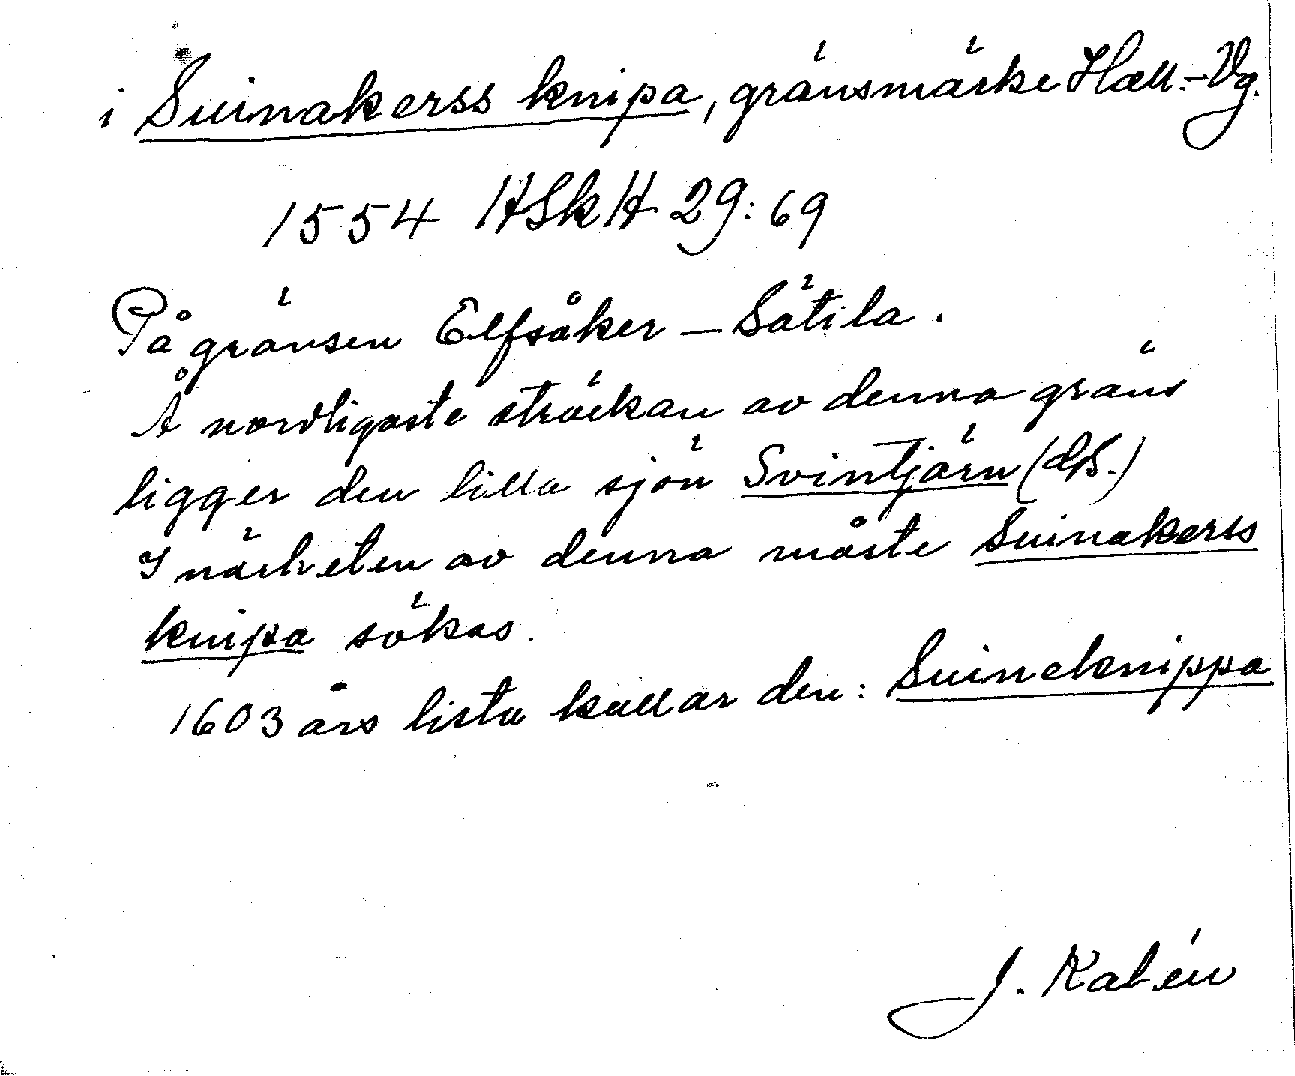 i Suinakerss knipa, gränsmärke Hall.-Vg.
1554 HSkH 29:69
På gränsen Elfsåker – Sätila.
Å nordligaste sträckan av denna gräns
ligger den lilla sjön Svintjärn (ds.)
I närheten av denna måste Suinakerss
knipa sökas.
1603 års lista kallar den: Suineknippa
J. Kalén